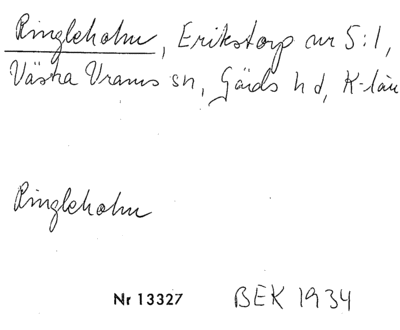 Ringleholm, Erikstorp nr 5:1,
Västra Vrams sn, Gärds hd, K-län
Ringleholm
Nr 13327 BEK 1934